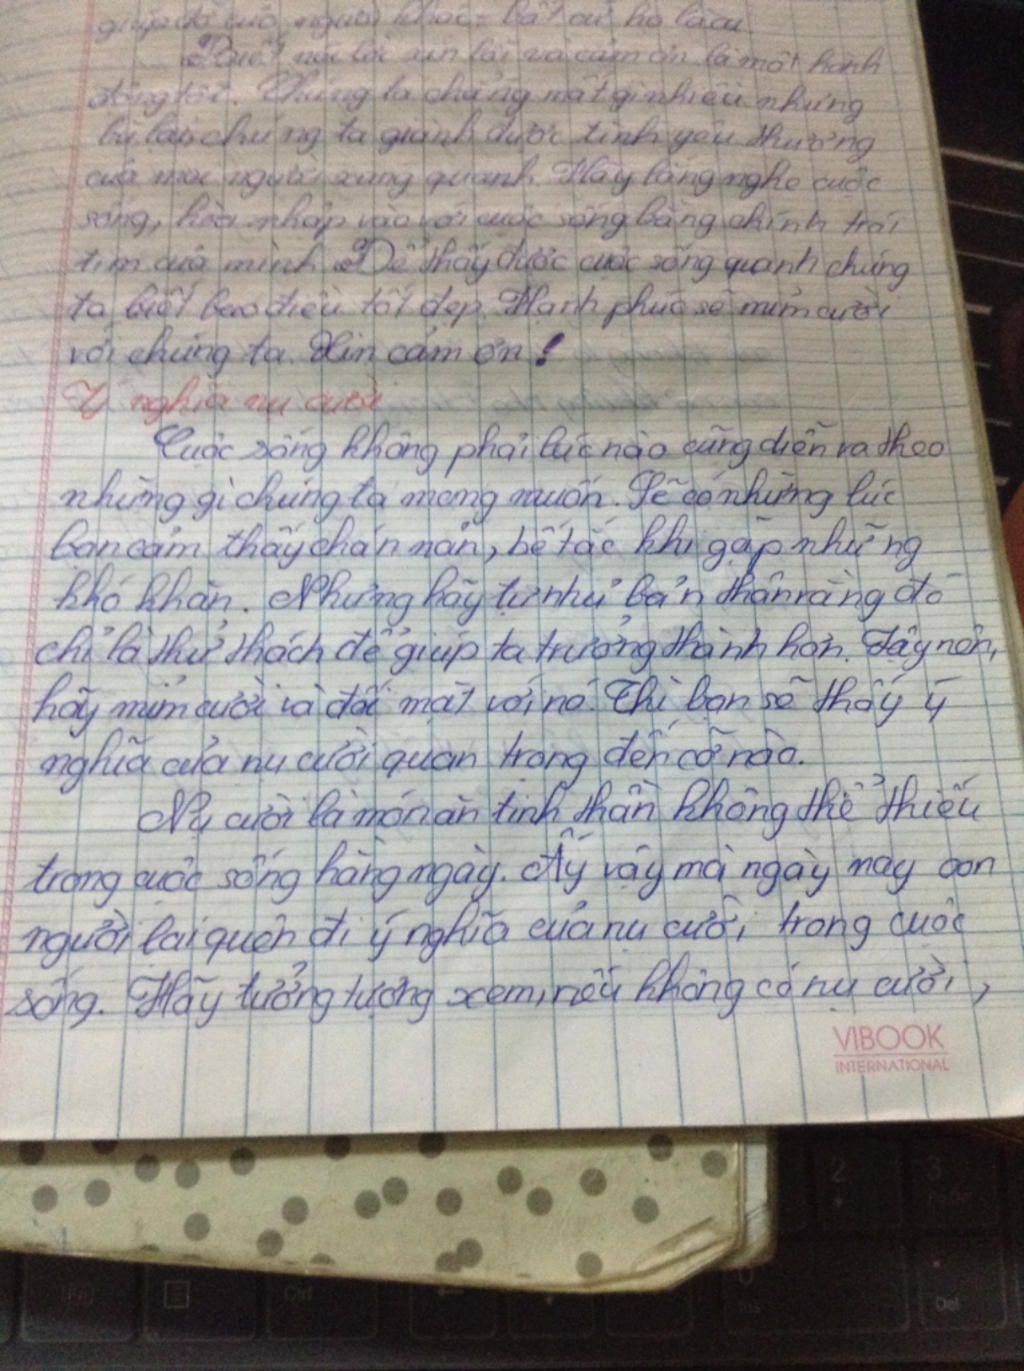 giúp đỡ của người khác bất cứ họ là ai
Biết nói lời xin lỗi và cảm ơn là một hành
động tốt. Chúng ta chẳng mất gì nhiều nhưng
bù lại chúng ta giành được tình yêu thương
của mọi người xung quanh. Hãy lắng nghe cuộc
sống, hòa nhập vào với cuộc sống bằng chính trái
tim của mình. Để thấy được cuộc sống quanh chúng
ta biết bao điều tốt đẹp. Hạnh phúc sẽ mỉm cười
với chúng ta. Xin cảm ơn!
Ý nghĩa nụ cười
Cuộc sống không phải lúc nào cũng diễn ra theo
những gì chúng ta mong muốn. Sẽ có những lúc
bạn cảm thấy chán nản, bế tắc khi gặp những
khó khăn. Nhưng hãy tự nhủ bản thân rằng đó
chỉ là thử thách để giúp ta trưởng thành hơn. Vậy nên,
hãy mỉm cười và đối mặt với nó. Thì bạn sẽ thấy ý
nghĩa của nụ cười quan trọng đến cỡ nào.
Nụ cười là món ăn tinh thần không thể thiếu
trong cuộc sống hàng ngày. Ấy vậy mà ngày nay con
người lại quên đi ý nghĩa của nụ cười trong cuộc
sống. Hãy tưởng tượng xem, nếu không có nụ cười,
VIBOOK
INTERNATIONAL
2
3
PgDn
0
Ins
.
Del
Fn
Ctrl